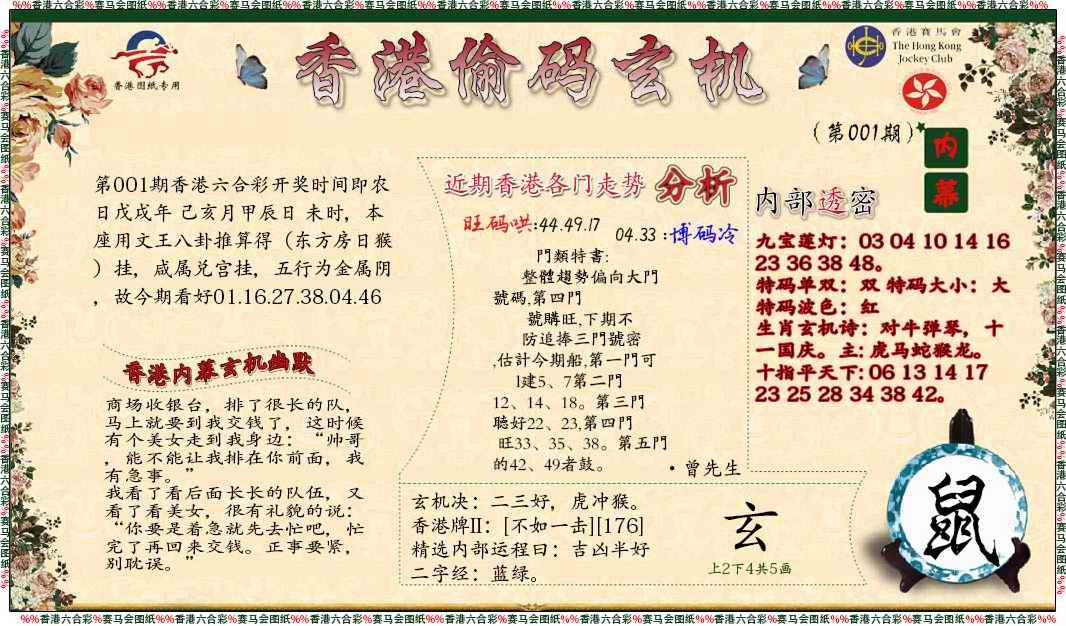 %%香港六合彩%赛马会图纸%%香港六合彩%赛马会图纸%%香港六合彩%赛马会图纸%%香港六合彩%赛马会图纸%%香港六合彩%赛马会图纸%%香港六合彩%赛马会图纸%%香港六合彩%赛马会图纸%%香港六合彩%%
香港图纸专用
香港偷码玄机
香港賽馬會
The Hong Kong
Jockey Club
(第001期)
内
幕
第001期香港六合彩开奖时间即农
日戊戌年 己亥月甲辰日 未时，本
座用文王八卦推算得（东方房日猴
）挂，咸属兑宫挂，五行为金属阴
，故今期看好01.16.27.38.04.46
香港内幕玄机幽默
商场收银台，排了很长的队，
马上就要到我交钱了，这时候
有个美女走到我身边：“帅哥
，能不能让我排在你前面，我
有急事。”
我看了看后面长长的队伍，又
看了看美女，很有礼貌的说：
“你要是着急就先去忙吧，忙
完了再回来交钱。正事要紧，
别耽误。”
近期香港各门走势 分析
旺码哄:44.49.17
04.33 :博码冷
門類特書:
整體趨勢偏向大門
號碼,第四門
號購旺,下期不
防追捧三門號密
,估計今期船,第一門可
1建5、7第二門
12、14、18。第三門
聽好22、23,第四門
旺33、35、38。第五門
的42、49者鼓。
·曾先生
内部透密
九宝莲灯：03 04 10 14 16
23 36 38 48。
特码单双：双 特码大小：大
特码波色：红
生肖玄机诗：对牛弹琴，十
一国庆。主: 虎马蛇猴龙。
十指平天下: 06 13 14 17
23 25 28 34 38 42。
玄机决：二三好，虎冲猴。
香港牌II：[不如一击][176]
精选内部运程日：吉凶半好
二字经：蓝绿。
玄
上2下4共5画
鼠
%%香港六合彩%赛马会图纸%%香港六合彩%赛马会图纸%%香港六合彩%赛马会图纸%%香港六合彩%赛马会图纸%%香港六合彩%赛马会图纸%%香港六合彩%赛马会图纸%%香港六合彩%赛马会图纸%%香港六合彩%%